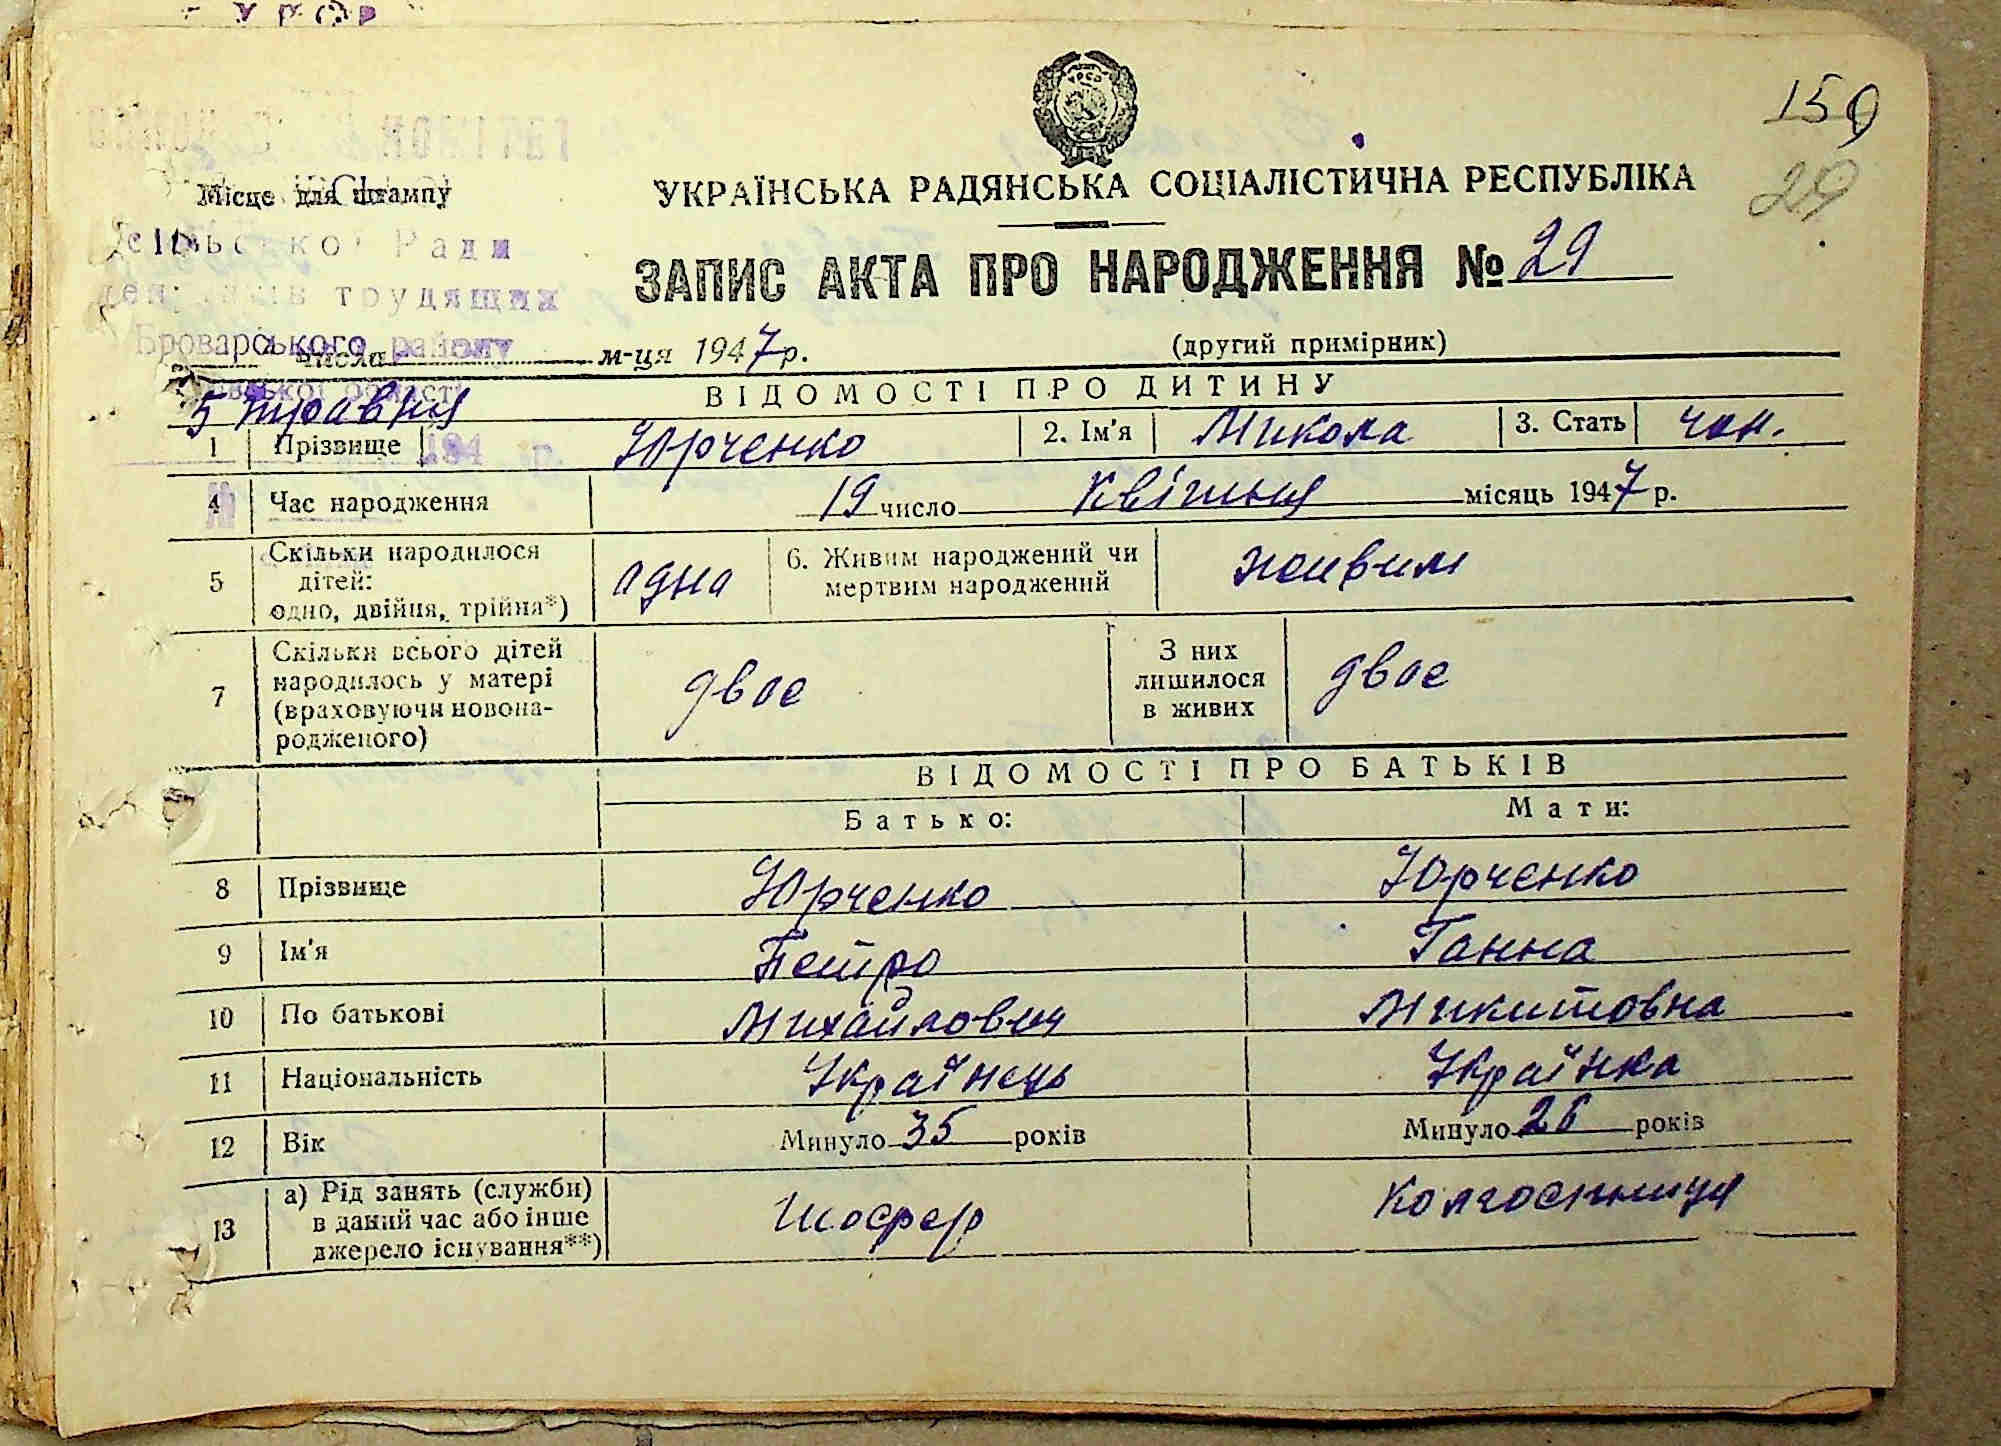 УРСР
150
29
Місце для штампу
УКРАЇНСЬКА РАДЯНСЬКА СОЦІАЛІСТИЧНА РЕСПУБЛІКА
Сільської Ради
ЗАПИС АКТА ПРО НАРОДЖЕННЯ № 29
депутатів трудящих
Броварського району
числа м-ця 1947 р.
(другий примірник)
області
5 травня
ВІДОМОСТІ ПРО ДИТИНУ
1 Прізвище Юрченко 2. Ім'я Микола 3. Стать чол.
194 р.
4 Час народження 19 число Квітня місяць 1947 р.
№
5 Скільки народилося дітей: одно, двійня, трійня*) одна 6. Живим народжений чи мертвим народжений живим
7 Скільки всього дітей народилось у матері (враховуючи новонародженого) двоє З них лишилося в живих двоє
ВІДОМОСТІ ПРО БАТЬКІВ
Батько: Мати:
8 Прізвище Юрченко Юрченко
9 Ім'я Петро Ганна
10 По батькові Михайлович Микитовна
11 Національність Українець Українка
12 Вік Минуло 35 років Минуло 26 років
13 а) Рід занять (служби) в даний час або інше джерело існування**) Шофер Колгоспниця